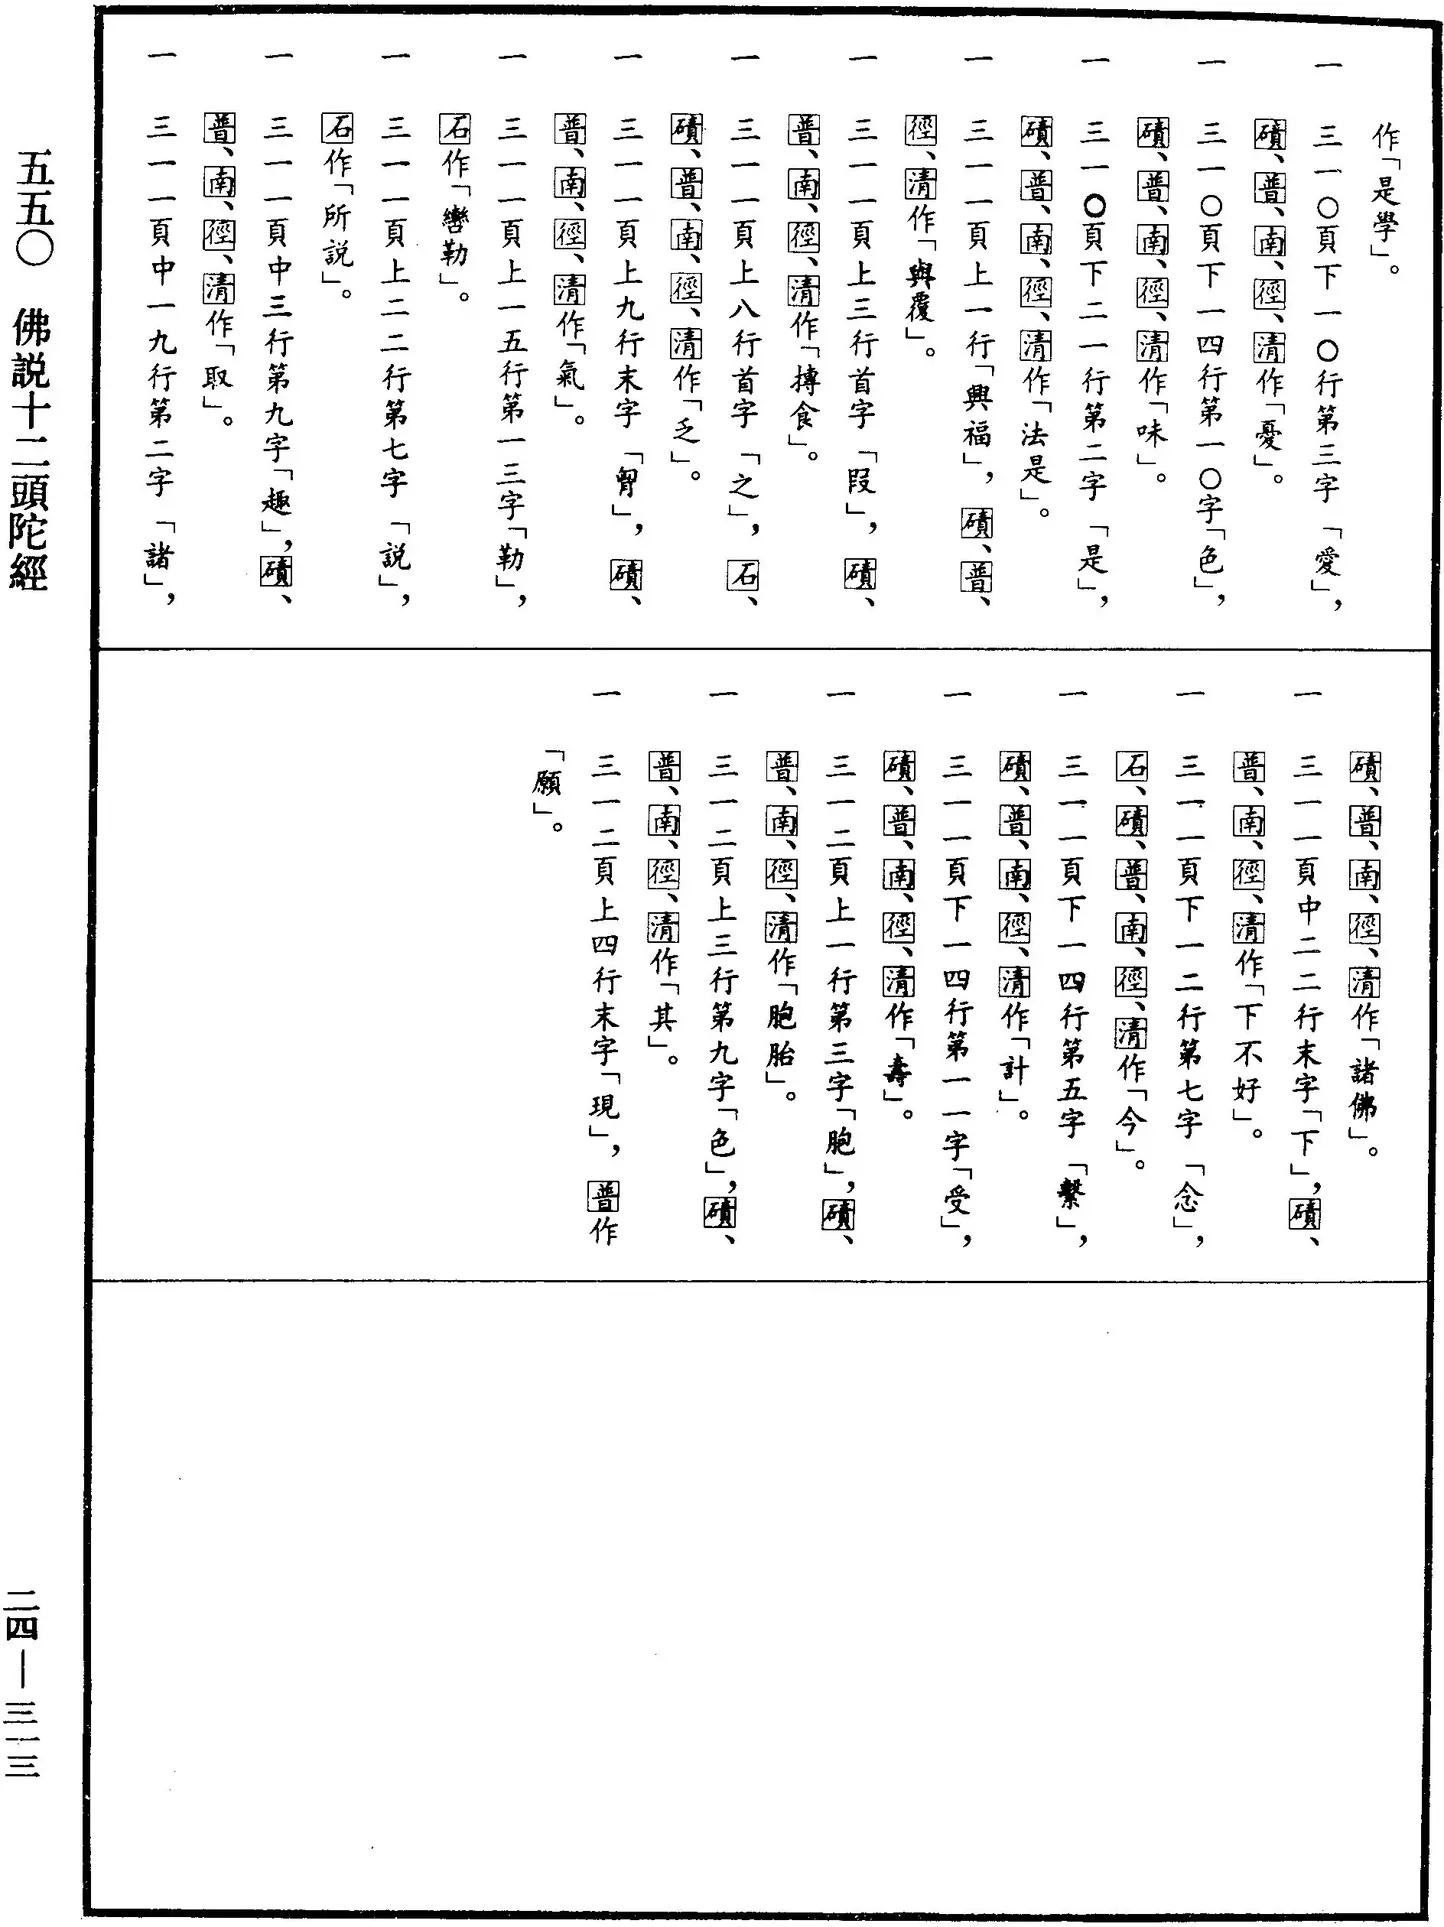 作「是學」。
一 三一〇頁下一〇行第三字「愛」，
磧、普、南、徑、清作「憂」。
一 三一〇頁下一四行第一〇字「色」，
磧、普、南、徑、清作「味」。
一 三一〇頁下二一行第二字「是」，
磧、普、南、徑、清作「法是」。
一 三一一頁上一行「興福」，磧、普、
徑、清作「與覆」。
一 三一一頁上三行首字「段」，磧、
普、南、徑、清作「摶食」。
一 三一一頁上八行首字「之」，石、
磧、普、南、徑、清作「乏」。
一 三一一頁上九行末字「胷」，磧、
普、南、徑、清作「氣」。
一 三一一頁上一五行第一三字「勒」，
石作「轡勒」。
一 三一一頁上二二行第七字「説」，
石作「所説」。
一 三一一頁中三行第九字「趣」，磧、
普、南、徑、清作「取」。
一 三一一頁中一九行第二字「諸」，
磧、普、南、徑、清作「諸佛」。
一 三一一頁中二二行末字「下」，磧、
普、南、徑、清作「下不好」。
一 三一一頁下一二行第七字「念」，
石、磧、普、南、徑、清作「今」。
一 三一一頁下一四行第五字「繫」，
磧、普、南、徑、清作「計」。
一 三一一頁下一四行第一一字「受」，
磧、普、南、徑、清作「壽」。
一 三一二頁上一行第三字「胞」，磧、
普、南、徑、清作「胞胎」。
一 三一二頁上三行第九字「色」，磧、
普、南、徑、清作「其」。
一 三一二頁上四行末字「現」，普作
「願」。
五五〇 佛説十二頭陀經
二四—三一三